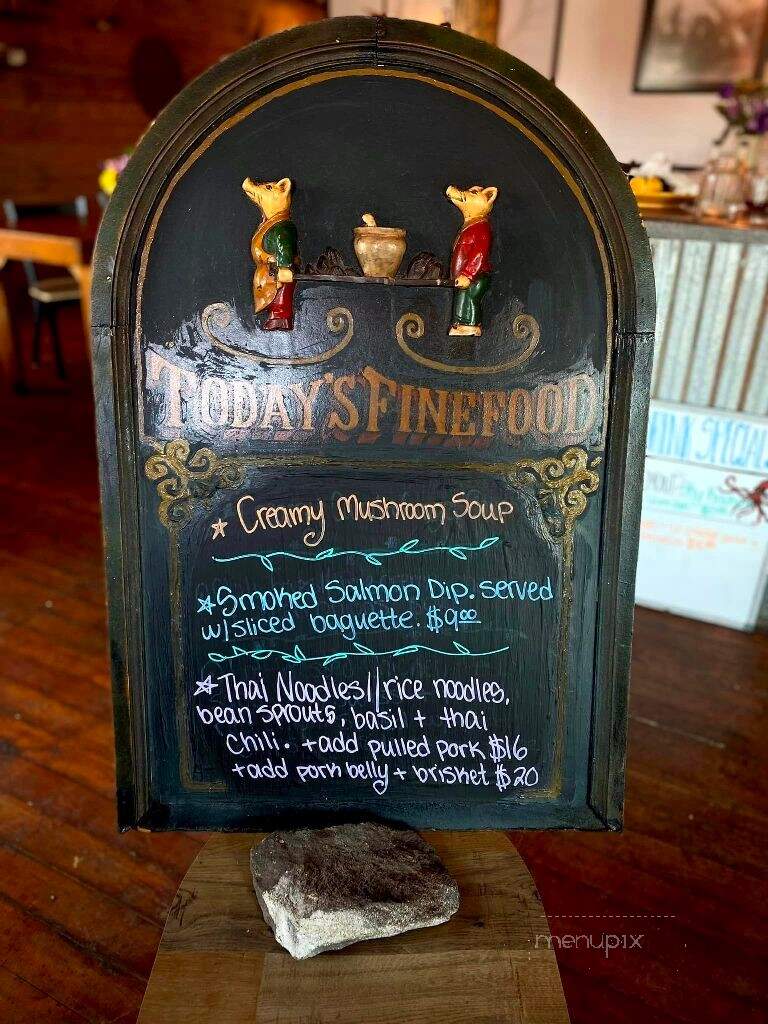 TODAY'S FINEFOOD
☆ Creamy Mushroom Soup
☆ Smoked Salmon Dip. served
w/sliced baguette. $9.00
☆ Thai Noodles//rice noodles,
bean sprouts, basil + thai
chili. +add pulled pork $16
+add pork belly + brisket $20
menupix